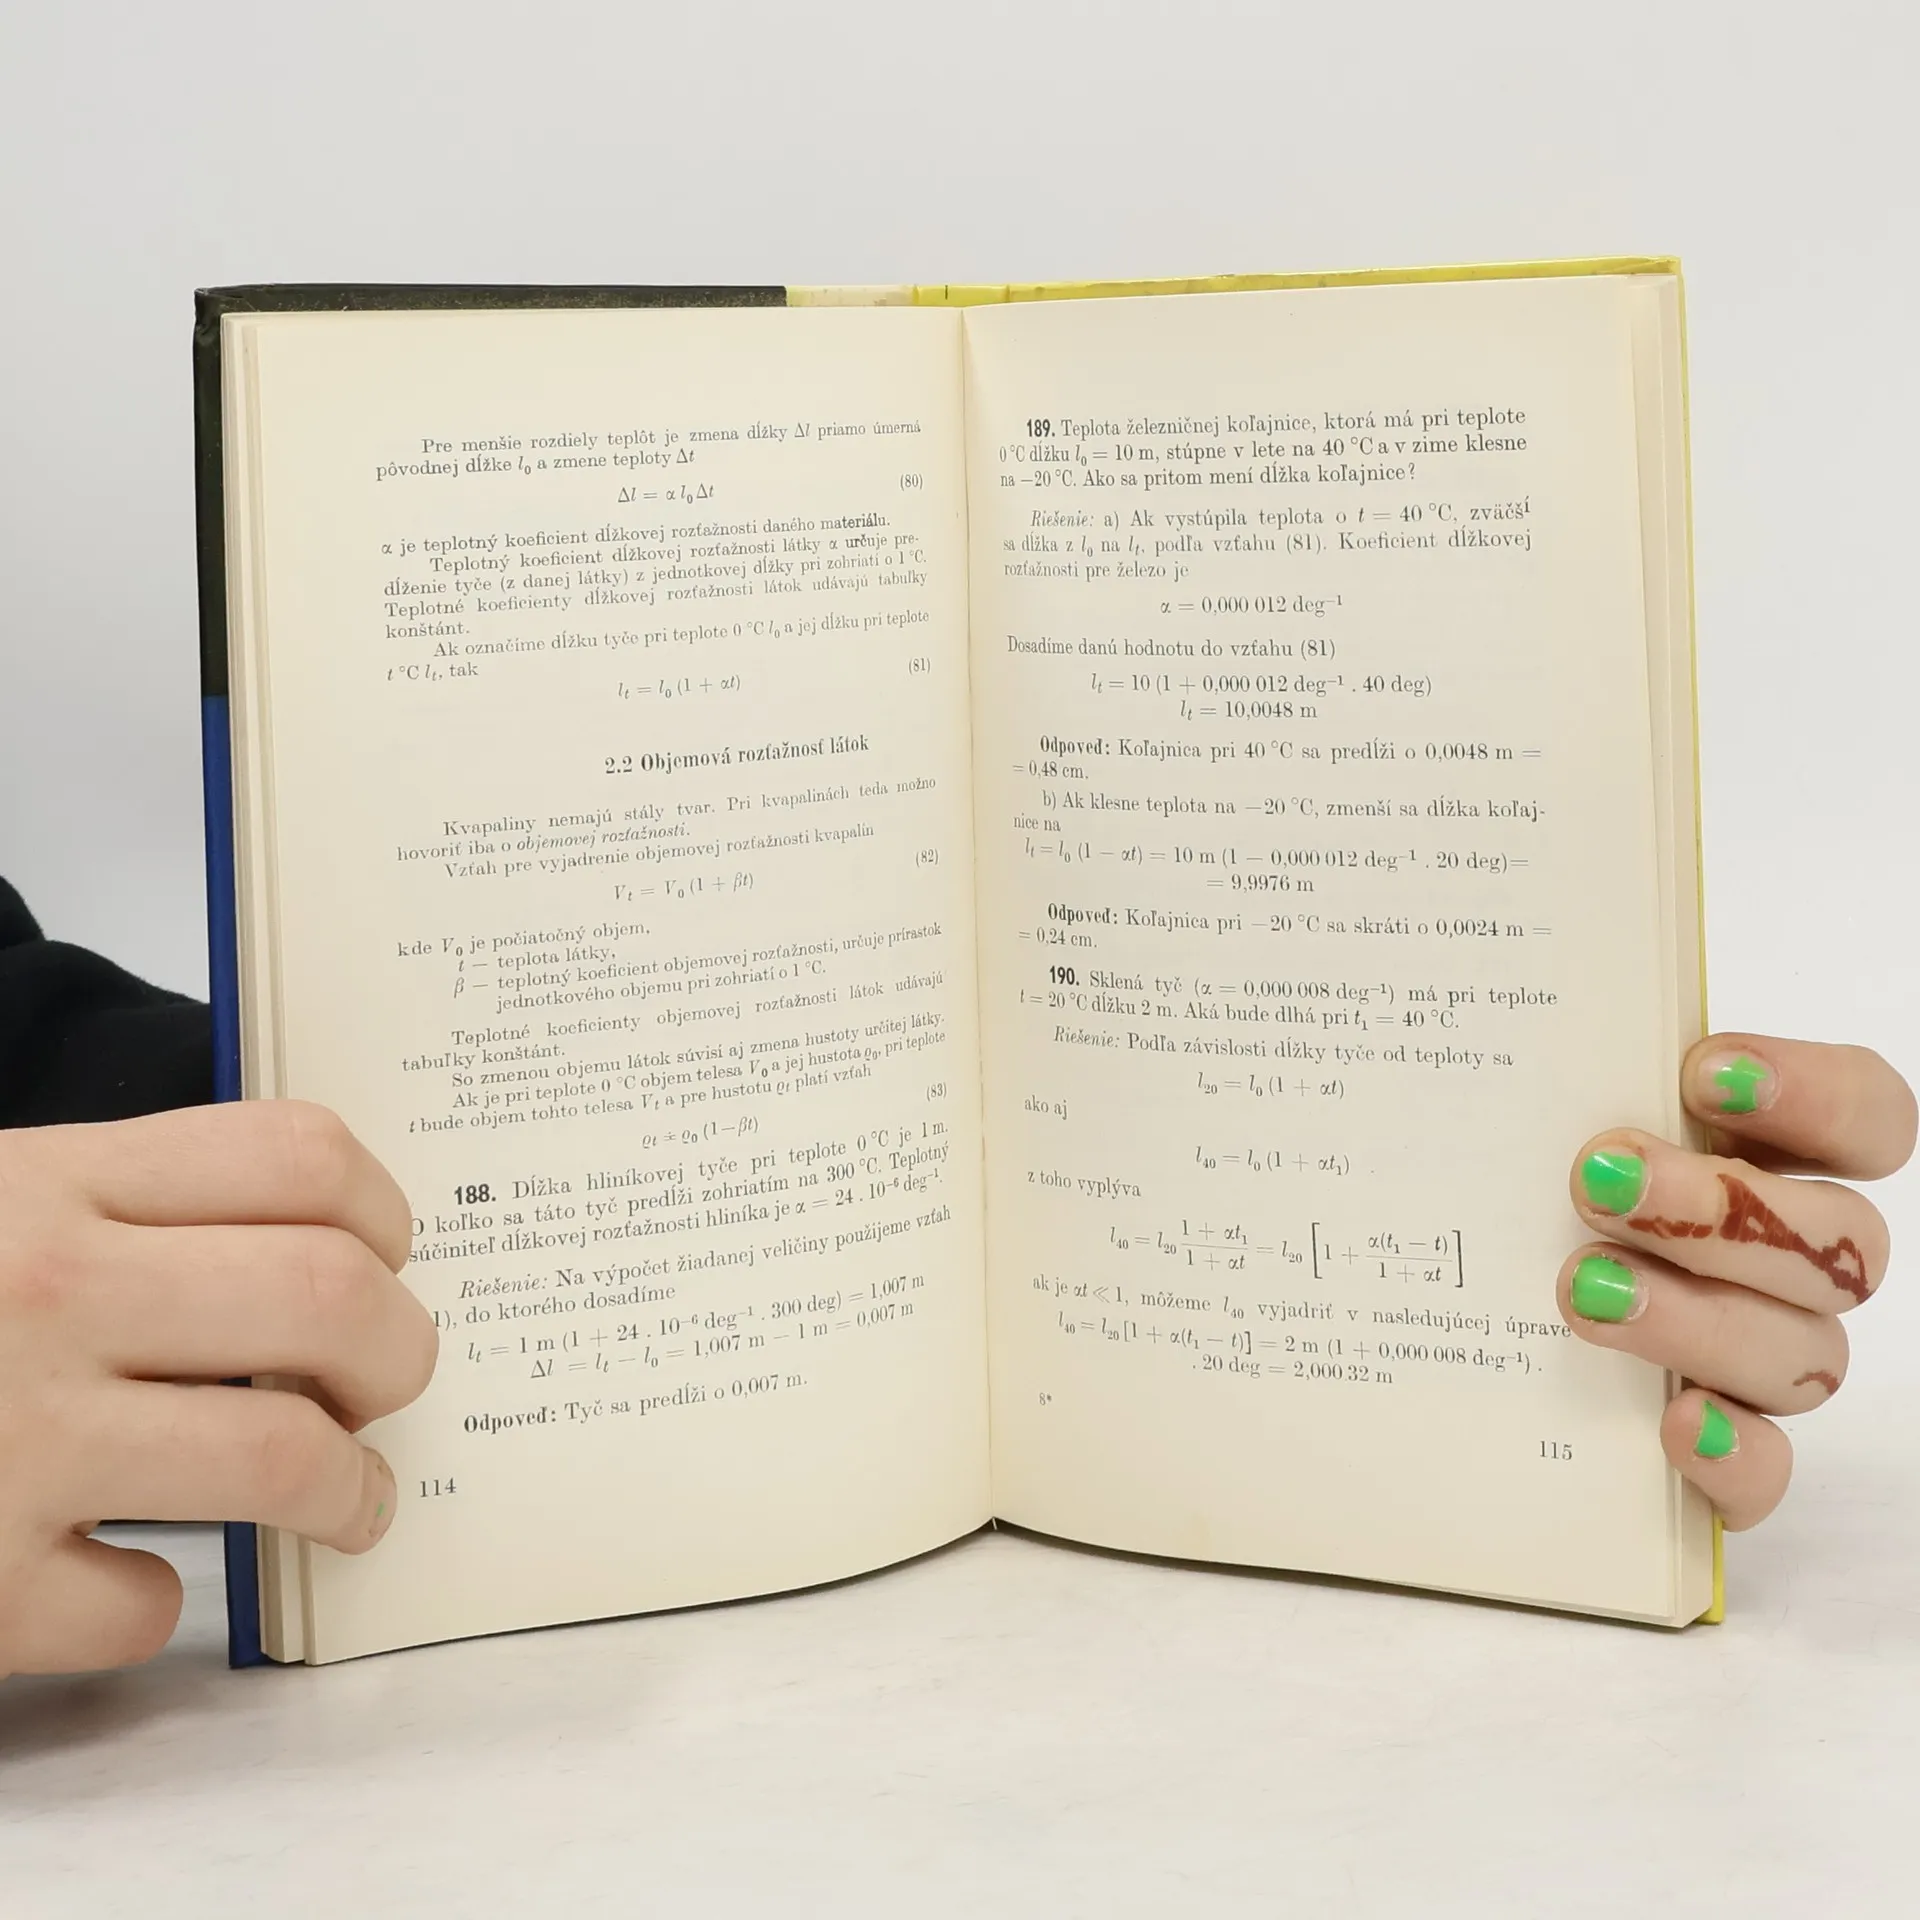 Pre menšie rozdiely teplôt je zmena dĺžky Δl priamo úmerná
pôvodnej dĺžke l₀ a zmene teploty Δt
Δl = α l₀ Δt (80)
α je teplotný koeficient dĺžkovej rozťažnosti daného materiálu.
Teplotný koeficient dĺžkovej rozťažnosti látky α určuje pre-
dĺženie tyče (z danej látky) z jednotkovej dĺžky pri zohriatí o 1 °C.
Teplotné koeficienty dĺžkovej rozťažnosti látok udávajú tabuľky
konštánt.
Ak označíme dĺžku tyče pri teplote 0 °C l₀ a jej dĺžku pri teplote
t °C lₜ, tak
lₜ = l₀ (1 + αt) (81)
2.2 Objemová rozťažnosť látok
Kvapaliny nemajú stály tvar. Pri kvapalinách teda možno
hovoriť iba o objemovej rozťažnosti.
Vzťah pre vyjadrenie objemovej rozťažnosti kvapalín
Vₜ = V₀ (1 + βt) (82)
kde V₀ je počiatočný objem,
t — teplota látky,
β — teplotný koeficient objemovej rozťažnosti, určuje prírastok
jednotkového objemu pri zohriatí o 1 °C.
Teplotné koeficienty objemovej rozťažnosti látok udávajú
tabuľky konštánt.
So zmenou objemu látok súvisí aj zmena hustoty určitej látky.
Ak je pri teplote 0 °C objem telesa V₀ a jej hustota ϱ₀, pri teplote
t bude objem tohto telesa Vₜ a pre hustotu ϱₜ platí vzťah
ϱₜ ≐ ϱ₀ (1—βt) (83)
188. Dĺžka hliníkovej tyče pri teplote 0 °C je 1 m.
O koľko sa táto tyč predĺži zohriatím na 300 °C. Teplotný
súčiniteľ dĺžkovej rozťažnosti hliníka je α = 24 . 10⁻⁶ deg⁻¹.
Riešenie: Na výpočet žiadanej veličiny použijeme vzťah
1), do ktorého dosadíme
lₜ = 1 m (1 + 24 . 10⁻⁶ deg⁻¹ . 300 deg) = 1,007 m
Δl = lₜ — l₀ = 1,007 m — 1 m = 0,007 m
Odpoveď: Tyč sa predĺži o 0,007 m.
114
189. Teplota železničnej koľajnice, ktorá má pri teplote
0 °C dĺžku l₀ = 10 m, stúpne v lete na 40 °C a v zime klesne
na —20 °C. Ako sa pritom mení dĺžka koľajnice?
Riešenie: a) Ak vystúpila teplota o t = 40 °C, zväčší
sa dĺžka z l₀ na lₜ, podľa vzťahu (81). Koeficient dĺžkovej
rozťažnosti pre železo je
α = 0,000 012 deg⁻¹
Dosadíme danú hodnotu do vzťahu (81)
lₜ = 10 (1 + 0,000 012 deg⁻¹ . 40 deg)
lₜ = 10,0048 m
Odpoveď: Koľajnica pri 40 °C sa predĺži o 0,0048 m =
= 0,48 cm.
b) Ak klesne teplota na —20 °C, zmenší sa dĺžka koľaj-
nice na
lₜ = l₀ (1 — αt) = 10 m (1 — 0,000 012 deg⁻¹ . 20 deg)=
= 9,9976 m
Odpoveď: Koľajnica pri —20 °C sa skráti o 0,0024 m =
= 0,24 cm.
190. Sklená tyč (α = 0,000 008 deg⁻¹) má pri teplote
t = 20 °C dĺžku 2 m. Aká bude dlhá pri t₁ = 40 °C.
Riešenie: Podľa závislosti dĺžky tyče od teploty sa
l₂₀ = l₀ (1 + αt)
ako aj
l₄₀ = l₀ (1 + αt₁)
z toho vyplýva
l₄₀ = l₂₀ (1 + αt₁)/(1 + αt) = l₂₀ [1 + α(t₁ — t)/(1 + αt)]
ak je αt ≪ 1, môžeme l₄₀ vyjadriť v nasledujúcej úprave
l₄₀ = l₂₀ [1 + α(t₁ — t)] = 2 m (1 + 0,000 008 deg⁻¹) .
. 20 deg = 2,000 32 m
8*
115